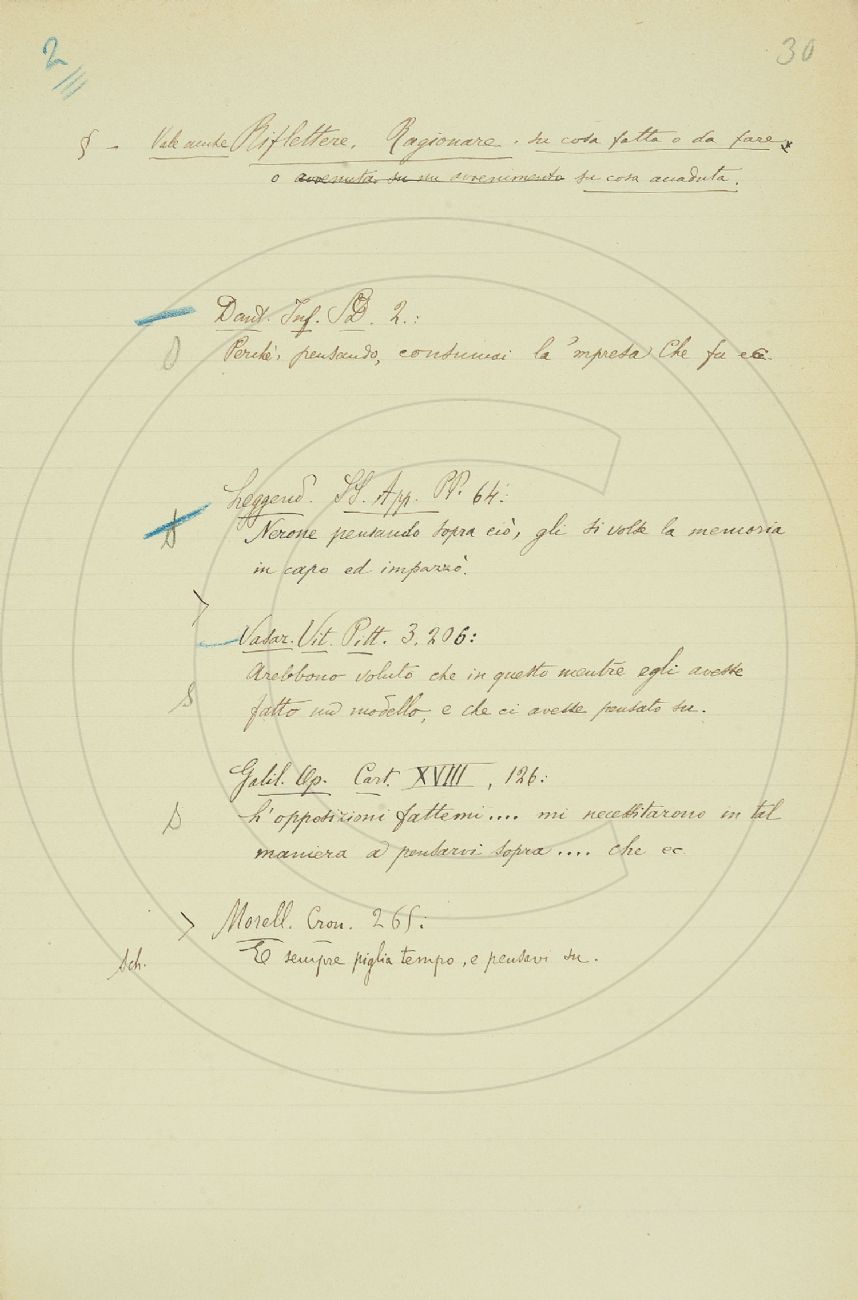 2
30
§ - Vale anche Riflettere, Ragionare, su cosa fatta o da fare
o avvenuta su un avvenimento su cosa accaduta.
Dant. Inf. 2.:
Perchè, pensando, consumai la 'mpresa Che fu ec
Leggend. SS. App. PP. 64:
Nerone pensando sopra ciò, gli si volse la memoria
in capo ed impazzò.
Vasar. Vit. Pitt. 3, 206:
Arebbono voluto che in questo mentre egli avesse
S
fatto un modello, e che ci avesse pensato su.
Galil. Op. Cart. XVIII, 126:
L'opposizioni fattemi.... mi necessitarono in tal
maniera a pensarvi sopra.... che ec
Morell. Cron. 265:
Sch.
E sempre piglia tempo, e pensavi su.